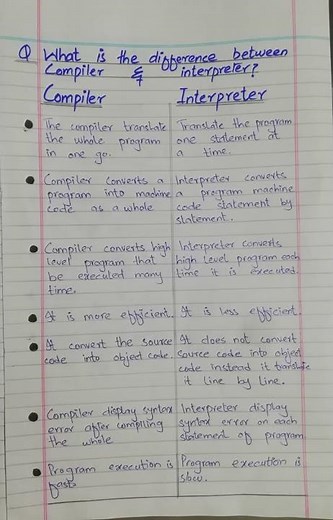 Q What is the difference between
Compiler & interpreter?
Compiler Interpreter
The compiler translate
the whole program
in one go.
Translate the program
one statement at
a time.
Compiler converts a
program into machine
code as a whole
Interpreter converts
a program machine
code statement by
statement.
Compiler converts high
level program that
be executed many
time.
Interpreter converts
high level program each
time it is executed.
It is more efficient.
It is less efficient.
It convert the source
code into object code.
It does not convert
source code into object
code instead it translate
it line by line.
Compiler display syntax
error after compiling
the whole
Interpreter display
syntax error on each
statement of program
Program execution is
fast.
Program execution is
slow.